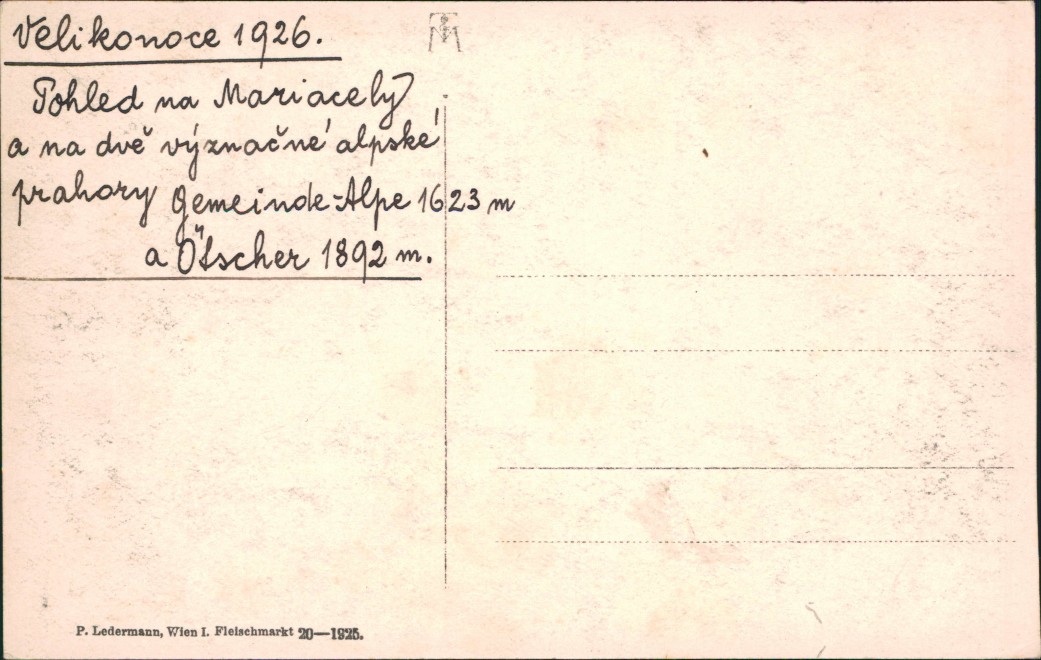 Velikonoce 1926.
Pohled na Mariacely
a na dvě význačné alpské
prahory Gemeinde-Alpe 1623 m
a Ötscher 1892 m.
P. Ledermann, Wien I. Fleischmarkt 20—1925.